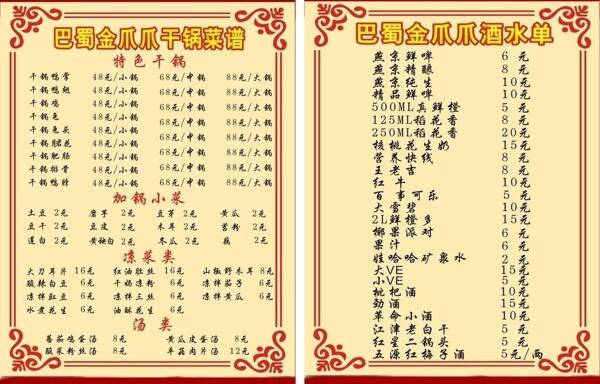 巴蜀金爪爪干锅菜谱
特色干锅
干锅鸭掌 48元/小锅 68元/中锅 88元/大锅
干锅鸭翅 48元/小锅 68元/中锅 88元/大锅
干锅鸡 48元/小锅 68元/中锅 88元/大锅
干锅鱼 48元/小锅 68元/中锅 88元/大锅
干锅鱼头 48元/小锅 68元/中锅 88元/大锅
干锅腰花 48元/小锅 68元/中锅 88元/大锅
干锅肥肠 48元/小锅 68元/中锅 88元/大锅
干锅排骨 48元/小锅 68元/中锅 88元/大锅
干锅鸭脖 48元/小锅 68元/中锅 88元/大锅
加锅小菜
土豆 2元 磨芋 2元 豆芽 2元 黄瓜 2元
豆干 2元 豆皮 2元 木耳 2元 苕粉 2元
莲白 2元 黄秧白 2元 冬瓜 2元 藕 2元
凉菜类
大刀耳片 16元 红油肚丝 16元 山椒野木耳 8元
酸辣白豆 6元 干妈凉粉 6元 凉拌茄子 6元
凉拌豇豆 6元 凉拌黄瓜 6元 凉拌土豆丝 6元
水煮花生 6元 油酥花生 6元
汤类
番茄鸡蛋汤 8元 黄瓜皮蛋汤 8元
酸菜粉丝汤 8元 平菇肉片汤 12元
巴蜀金爪爪酒水单
燕京鲜啤 6元
燕京精酿 8元
燕京纯生 10元
精品鲜啤 10元
500ML真鲜橙 5元
125ML稻花香 8元
250ML稻花香 20元
核桃花生奶 15元
营养快线 8元
王老吉 8元
红牛 10元
百事可乐 5元
大雪碧 10元
2L鲜橙多 15元
椰果派对 6元
果汁 6元
娃哈哈矿泉水 2元
大VE 15元
小VE 5元
枇杷酒 10元
劲酒 15元
革命小酒 10元
江津老白干 5元
红星二锅头 5元
五源红梅子酒 5元/两